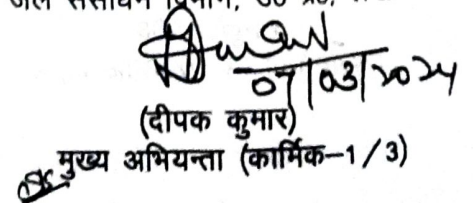 जल संसाधन विभाग, उ० प्र०,
07/03/2024
(दीपक कुमार)
मुख्य अभियन्ता (कार्मिक–1/3)